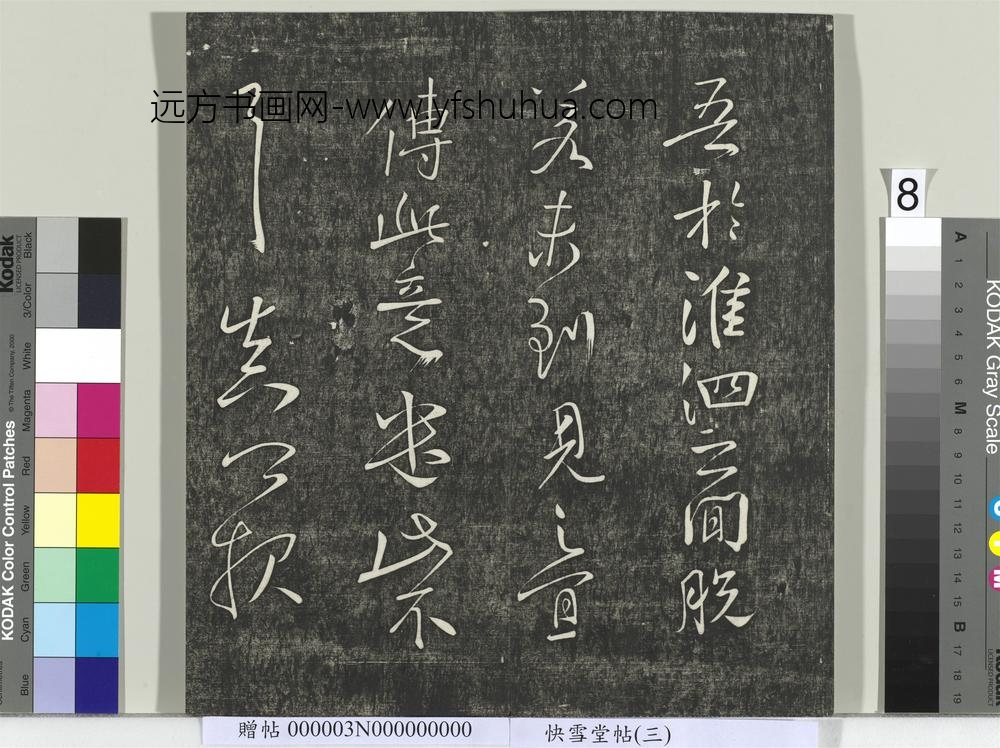 吾於淮泗之間脫
若未到見之宣
傳此意
不
远方书画网-www.yfshuhua.com
8
贈帖 000003N000000000
快雪堂帖(三)
KODAK Color Control Patches
Kodak
LICENSED PRODUCT
© The Tiffen Company, 2000
Blue
Cyan
Green
Yellow
Red
Magenta
White
3/Color
Black
KODAK Gray Scale
A
1
2
3
4
5
6
M
8
9
10
11
12
13
14
15
B
17
18
19